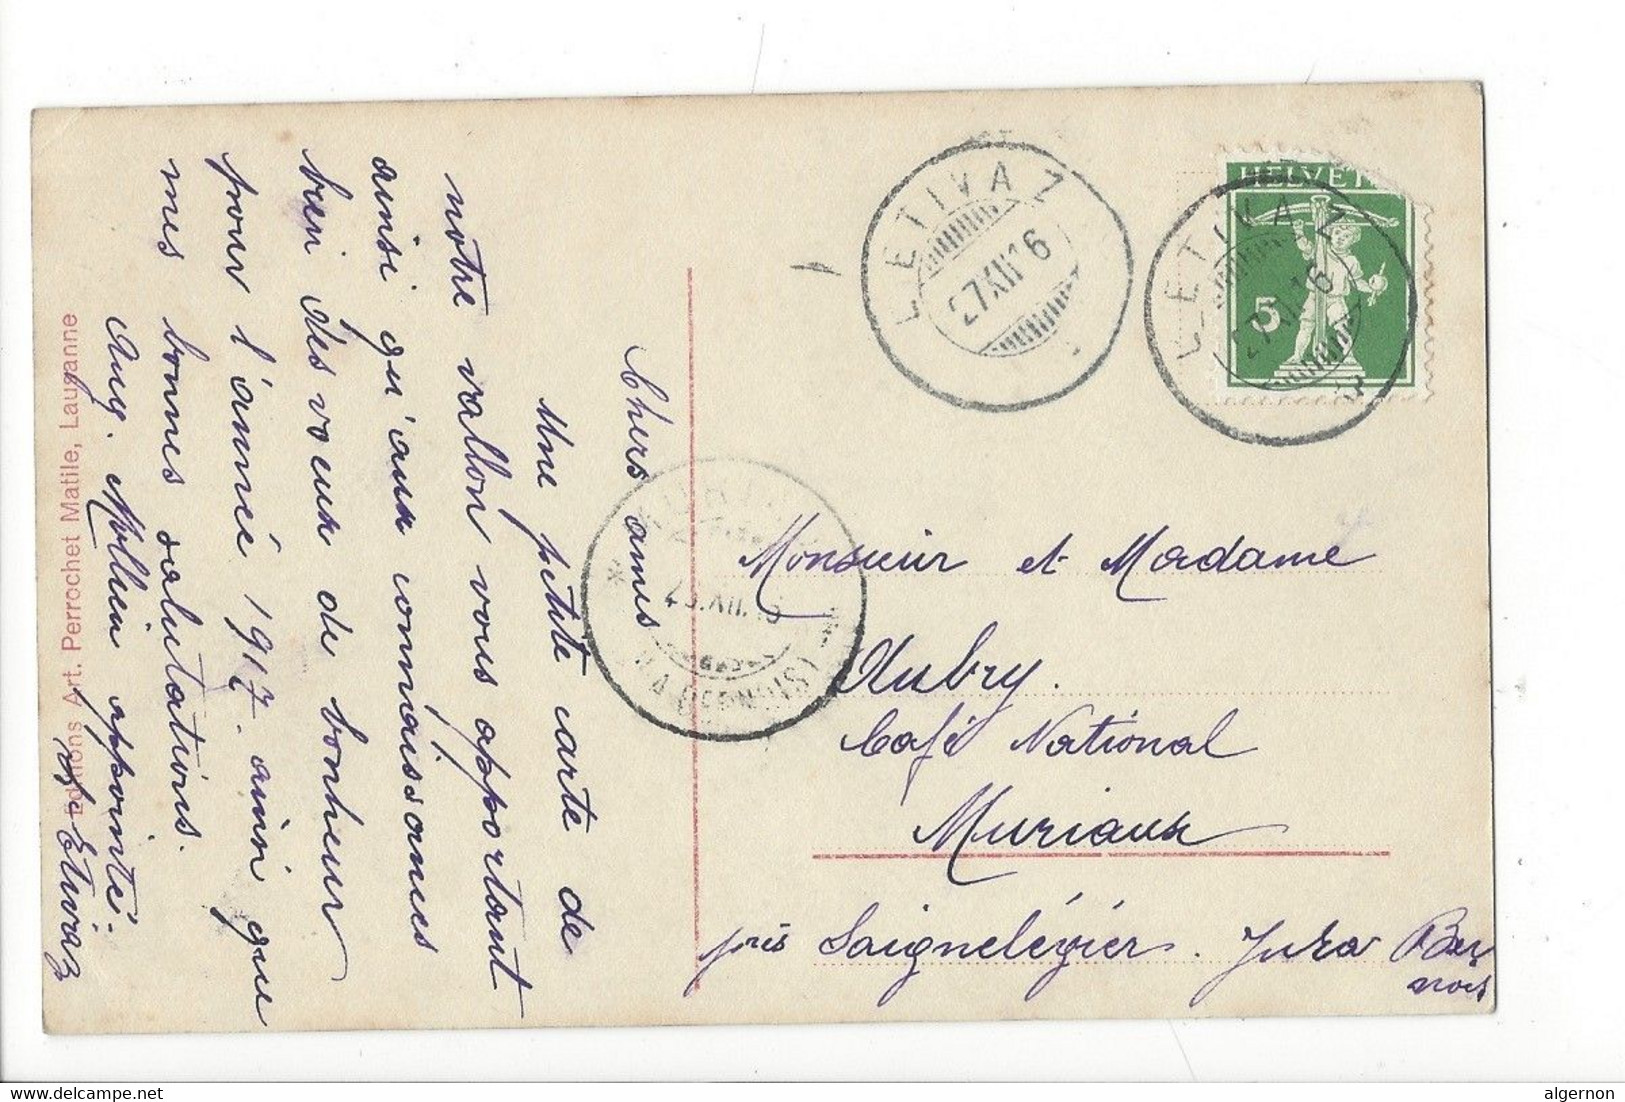 Chers amis
Une petite carte de
notre vallon vous apportant
ainsi qu'aux connaissances
bien des voeux de bonheur
pour l'année 1917. ainsi que
mes bonnes salutations.
Aug. Mollien appointé.
Etivaz
Editions Art. Perrochet Matile, Lausanne
LETIVAZ
27XII16
LETIVAZ
27XII16
HELVETI
5
XII.16
(JURA BERNOIS)
Monsieur et Madame
Aubry.
Café National
Muriaux
près Saignelégier. Jura Ber
nois
algernon